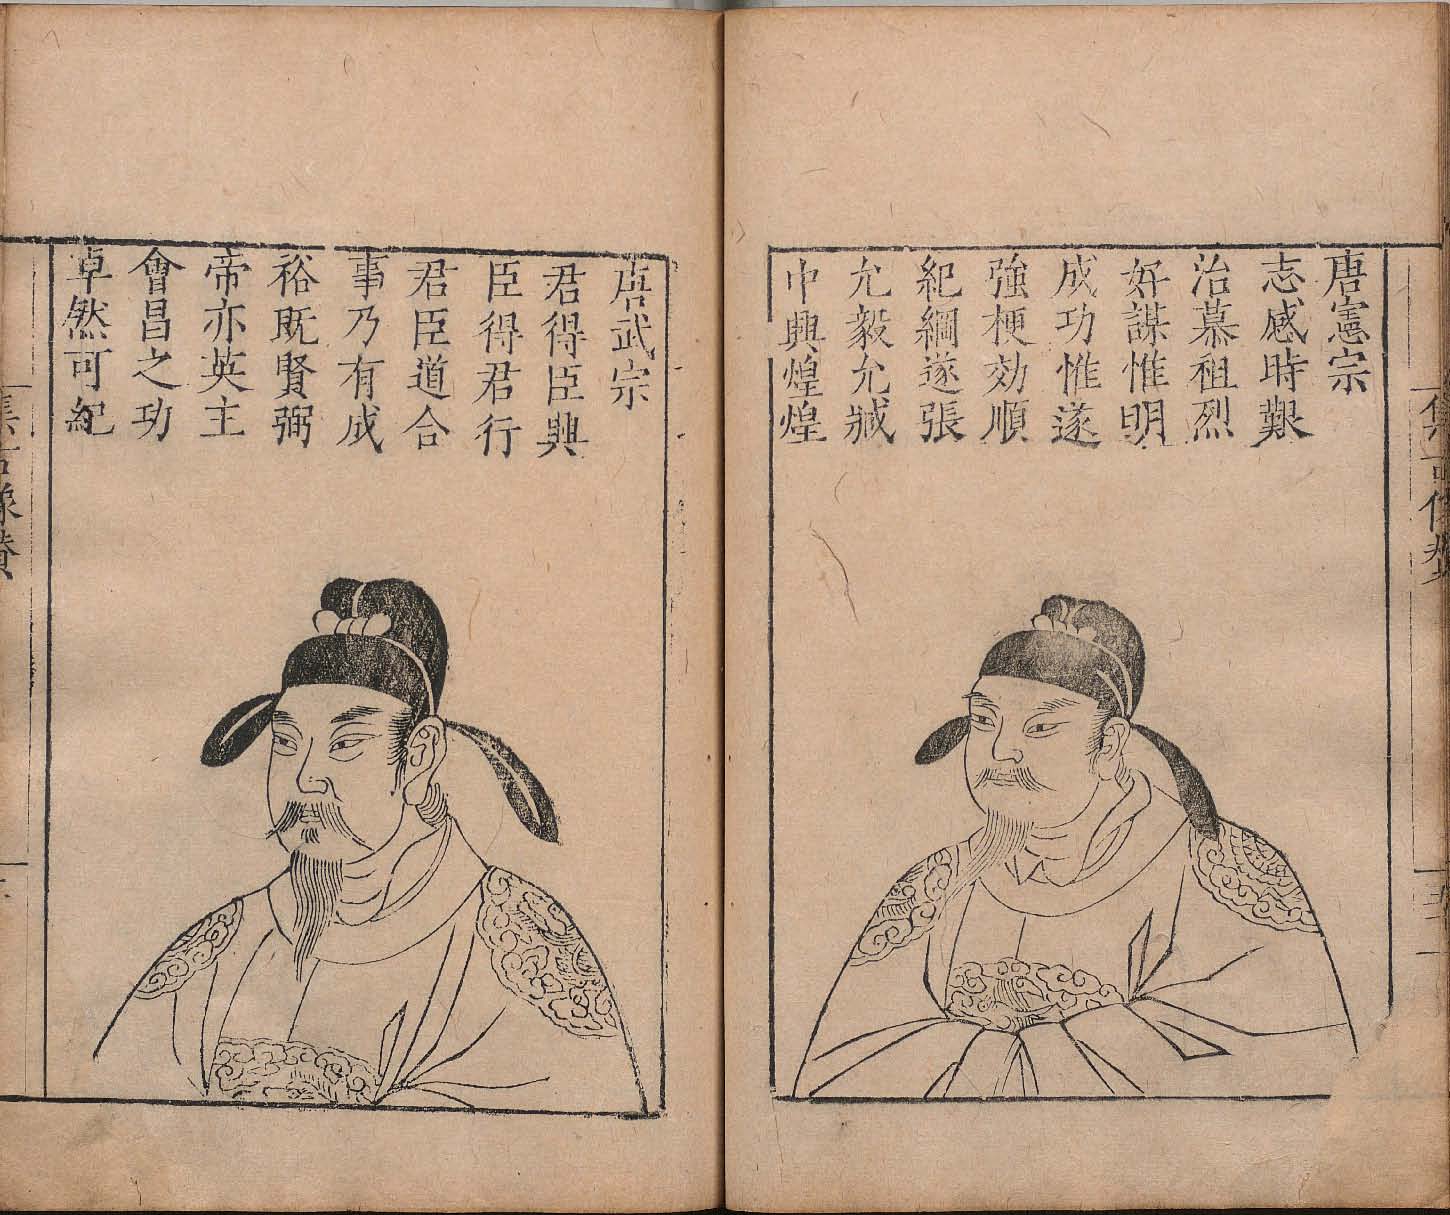 唐憲宗
志感時艱
治慕祖烈
好謀惟明
成功惟遂
強梗効順
紀綱遂張
允毅允臧
中興煌煌
集古像贊
唐武宗
君得臣興
臣得君行
君臣道合
事乃有成
裕既賢弼
帝亦英主
會昌之功
卓然可紀
集古像贊